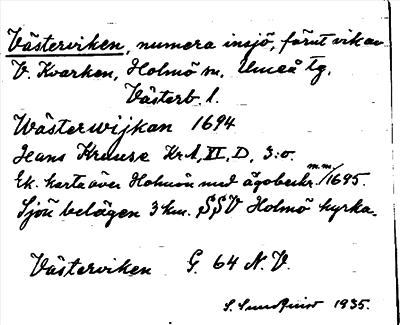 Västerviken, numera insjö, förut vik av
V. Kvarken, Holmö sn, Umeå tg,
Västerb. l.
Wästerwijkan 1694
Hans Kruuse Kr.A, XI, D, 3:o.
Ek. karta över Holmön med ägobeskr. m.m./1695.
Sjön belägen 3 km. SSV Holmö kyrka.
Västerviken G. 64 N.V.
1935.